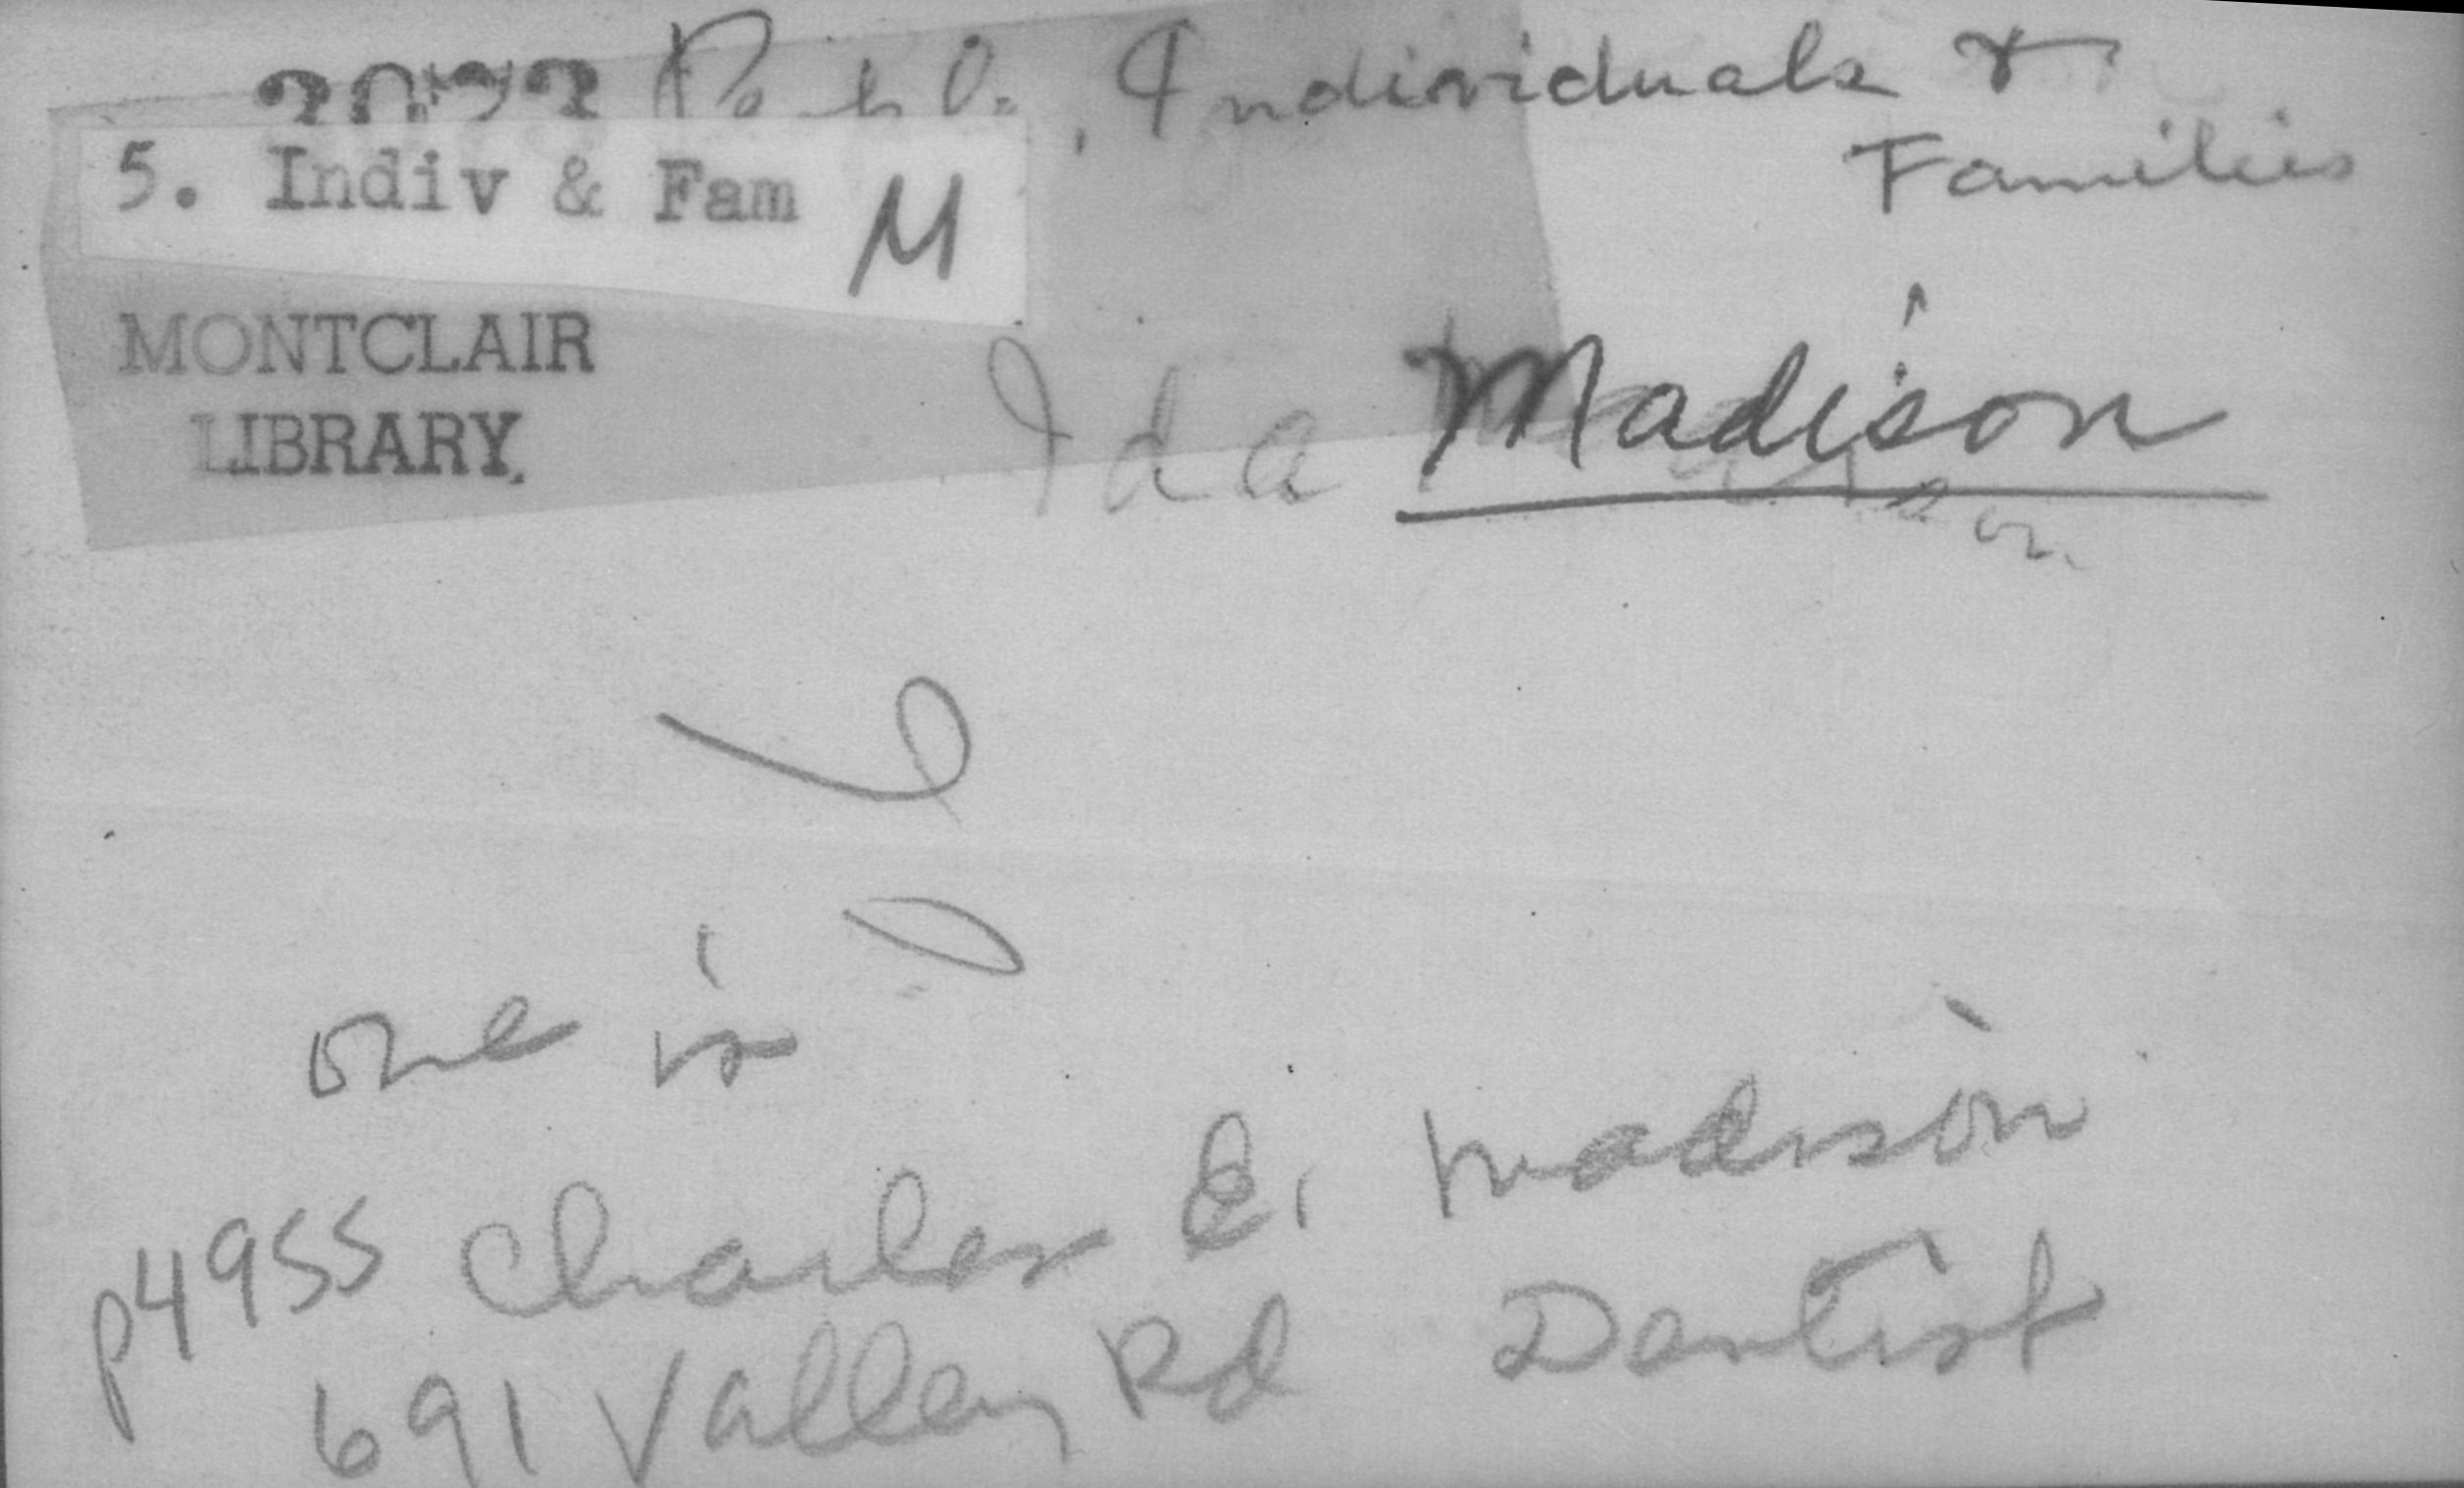 Individuals &
Families
5. Indiv & Fam M
MONTCLAIR
LIBRARY.
Ida Madison
one is
p4955 Charles E. Madison
691 Valley Rd Dentist